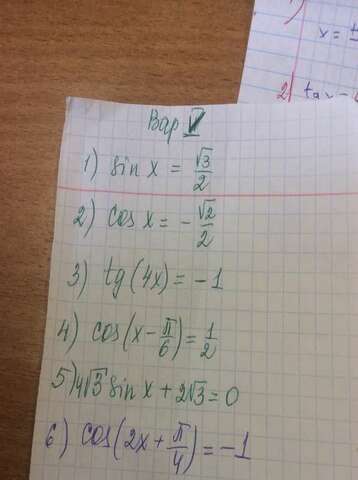 Вар V
1) sin x = √3/2
2) cos x = -√2/2
3) tg(4x) = -1
4) cos(x - π/6) = 1/2
5) 4√3 sin x + 2√3 = 0
6) cos(2x + π/4) = -1
1)
x =
2) tg x -